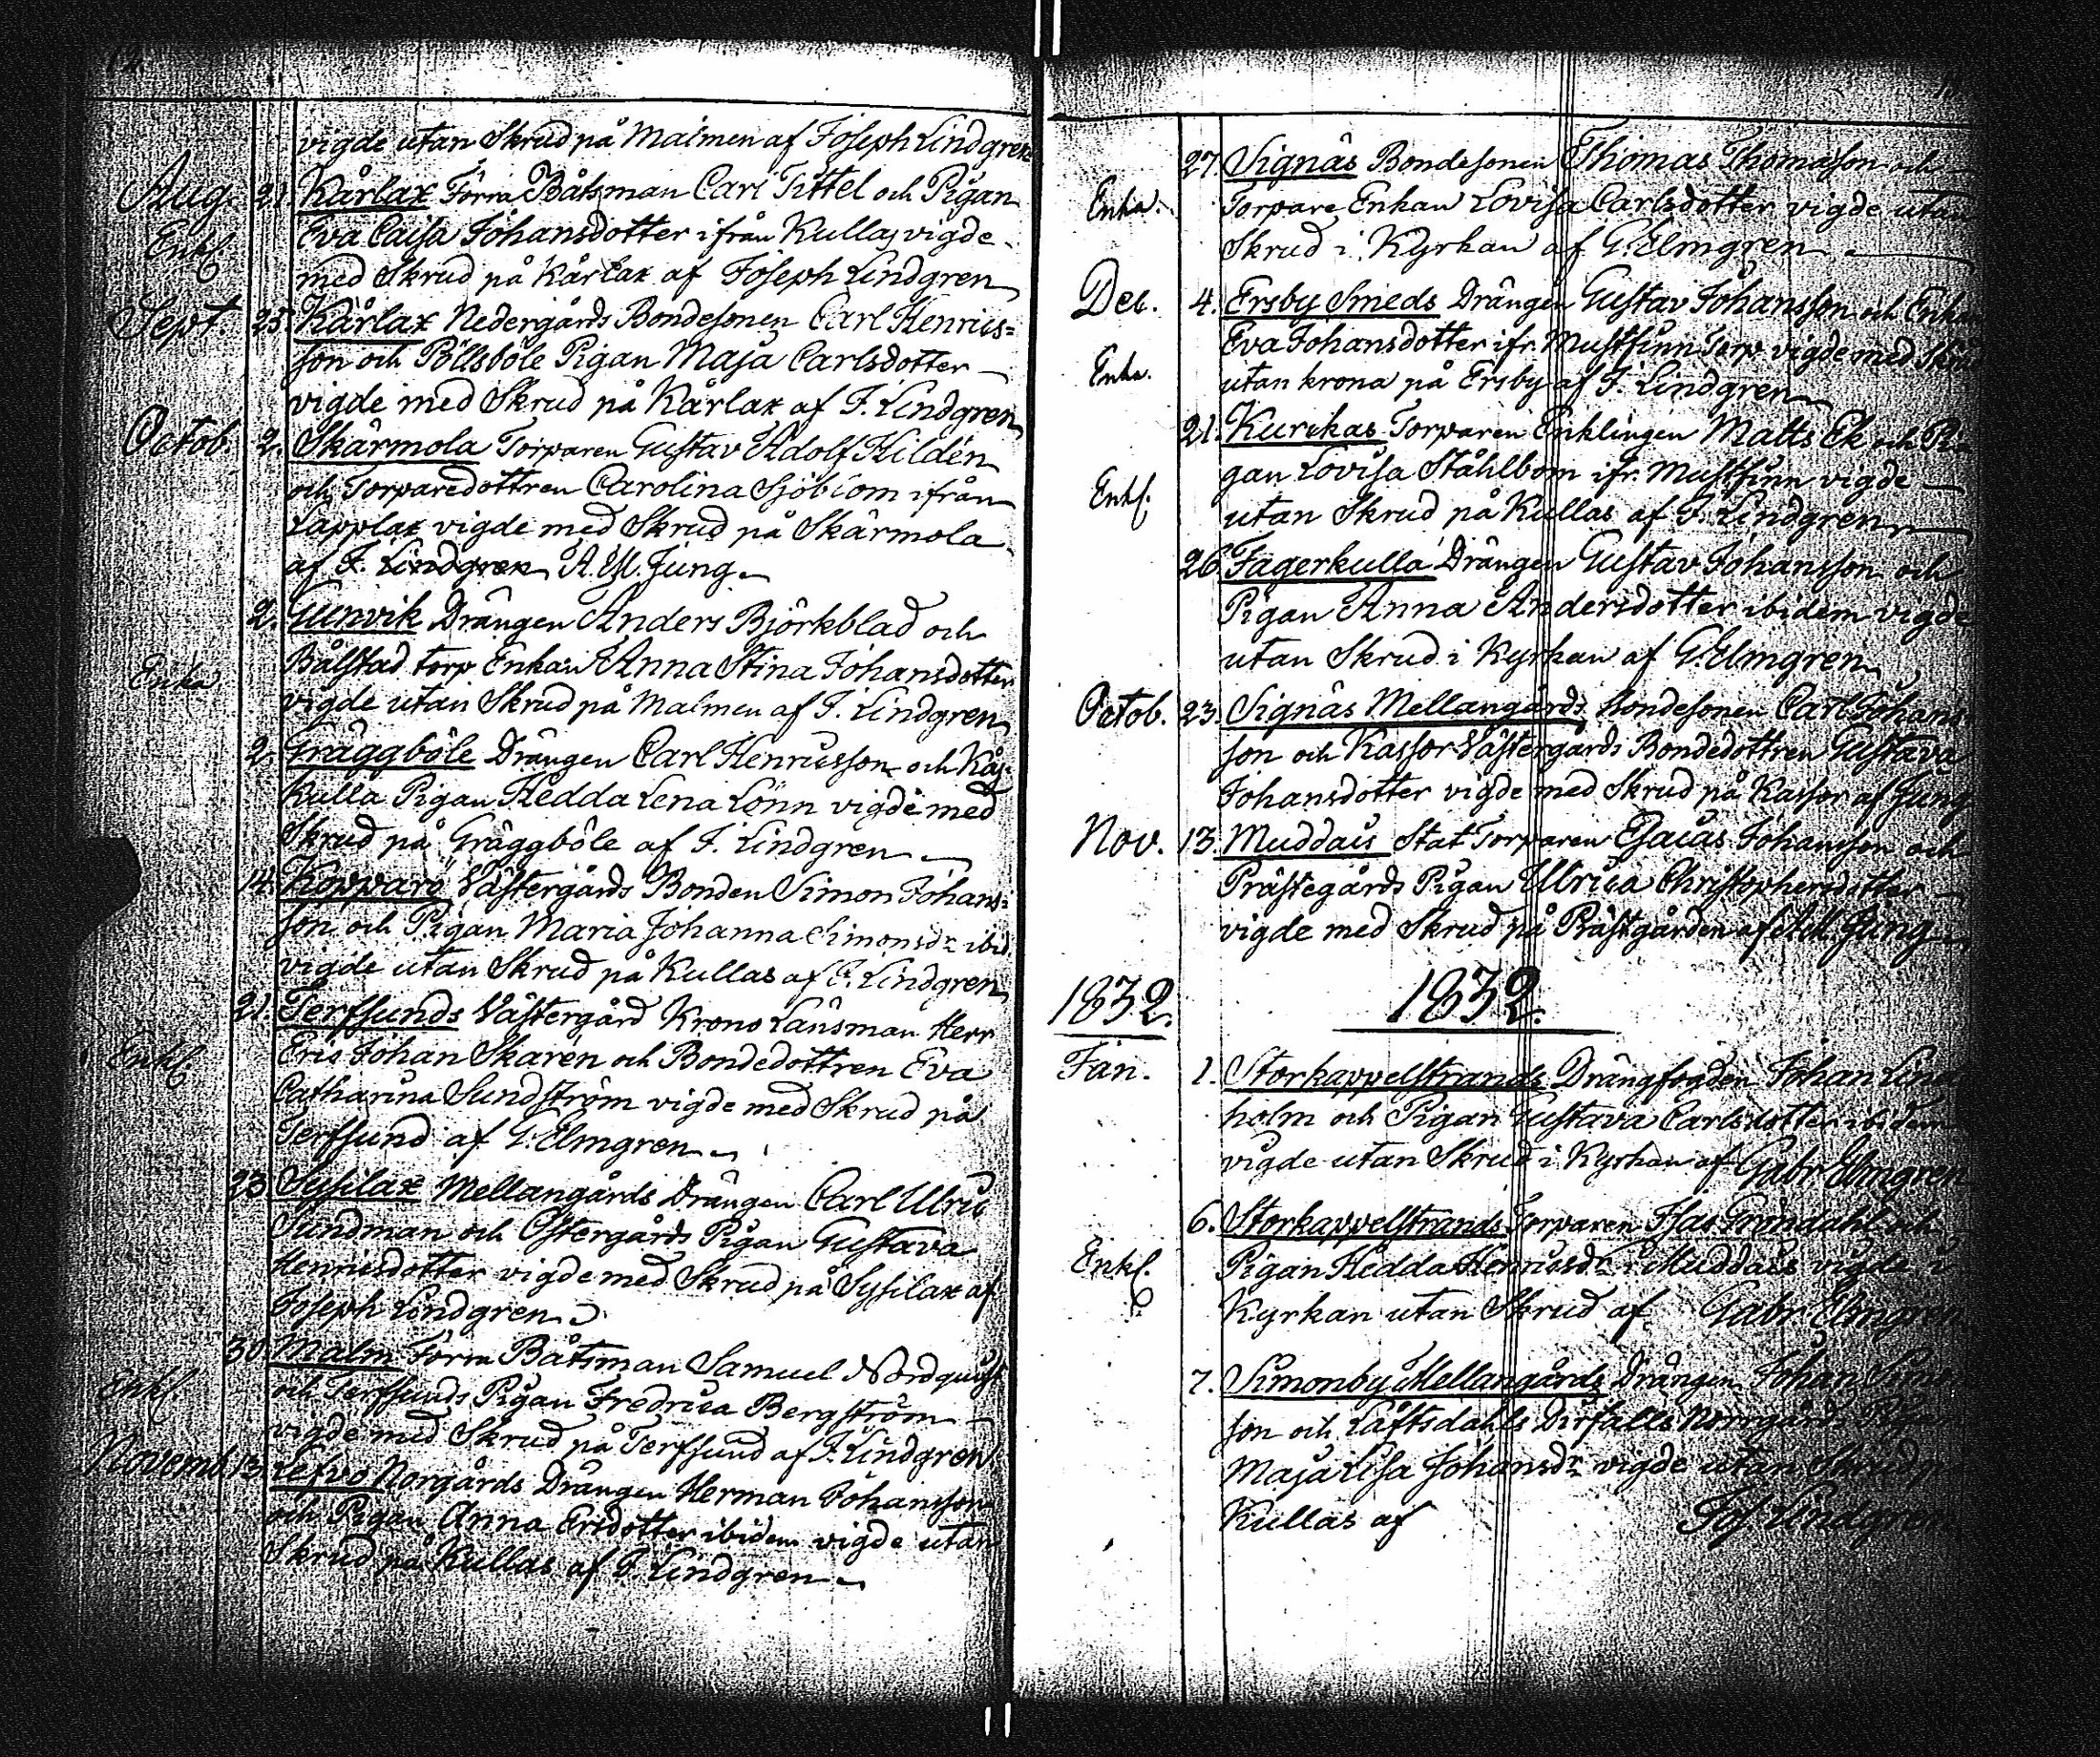 vigde utan Skrud på Malmen af Joseph Lindgren
Aug. 21. Kårlax Förra Båtsman Carl Tittel och Pigan
Enkl. Eva Caisa Johansdotter ifrån Kulla, vigde
med Skrud på Kårlax af Joseph Lindgren
Sept. 25. Kårlax Nedergårds Bondesonen Carl Henrics=
son och Böllsböle Pigan Maja Carlsdotter
vigde med Skrud på Kårlax af J. Lindgren
Octob. 2. Skärmola Torparen Gustav Adolf Hildén
och Torparedottren Carolina Sjöblom ifrån
Lapplax vigde med Skrud på Skärmola
af J. Lindgren A. M. Jung.
2. Gunvik Drängen Anders Björkblad och
Enka Bålstad torp Enkan Anna Stina Johansdotter
vigde utan Skrud på Malmen af J. Lindgren
2. Gräggböle Drängen Carl Henricsson och
kulla Pigan Hedda Lena Lönn vigde med
Skrud på Gräggböle af J. Lindgren
14. Kopparö Västergårds Bonden Simon Johans=
son och Pigan Maria Johanna Simonsdr ibid.
vigde utan Skrud på Kullas af J. Lindgren
21. Terfsunds Västergård Krono Länsman Herr
Enkl. Eric Johan Skarén och Bondedottren Eva
Catharina Sundström vigde med Skrud på
Terfsund af G. Elmgren
23 Sysilax Mellangårds Drängen Carl Ulric
Sundman och Östergårds Pigan Gustava
Henricsdotter vigde med Skrud på Sysilax af
Joseph Lindgren
30 Malm Förra Båtsman Samuel Nordquist
Enkl. och Terfsunds Pigan Fredrica Bergström
vigde med Skrud på Terfsund af J. Lindgren
Novemb. 13. Lefvö Norgårds Drängen Herman Johansson
och Pigan Anna Ersdotter ibidem vigde utan
Skrud på Kullas af J. Lindgren
27. Signäs Bondesonen Thomas Thomasson och
Enka. Torpare Enkan Lovisa Carlsdotter vigde utan
Skrud i Kyrkan af G. Elmgren
Dec. 4. Ersby Smeds Drängen Gustav Johansson och Enkan
Eva Johansdotter ifr. Mustfinn Torp vigde med Skrud
Enka. utan krona på Ersby af J. Lindgren
21. Kurckas Torparen Enklingen Matts Ek och Pi=
Enkl. gan Lovisa Ståhlbom ifr. Mustfinn vigde
utan Skrud på Kullas af J. Lindgren
26. Fagerkulla Drängen Gustav Johansson och
Pigan Anna Andersdotter ibidem vigde
utan Skrud i Kyrkan af G. Elmgren
Octob. 23. Signäs Mellangårds Bondesonen Carl Johans
son och Kassor Västergårds Bondedottren Gustava
Johansdotter vigde med Skrud på Kassor af Jung
Nov. 13. Muddais Stat Torparen Esaias Johansson och
Prästegårds Pigan Ulrica Christophersdotter
vigde med Skrud på Prästgården af A.M. Jung
1832. 1832.
Jan. 1. Storkappelstrands Drängfogden Johan Lind
holm och Pigan Gustava Carlsdotter ibidem
vigde utan Skrud i Kyrkan af Gabr Elmgren
6. Storkappelstrands Torparen Esas Gröndahl och
Enkl. Pigan Hedda Henricsdr i Muddais vigde i
Kyrkan utan Skrud af Gabr Elmgren
7. Simonby Mellangårds Drängen Johan Simons
son och Låftsdahls Norrgårds Pigan
Maja Lisa Johansdr vigde utan Skrud på
Kullas af Jos Lindgren